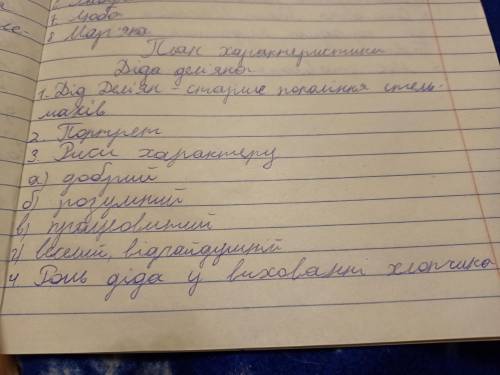 7. Люба
8. Мар'яна
План характеристики
Діда дем'яна
1. Дід Дем'ян - старше покоління стель-
махів
2. Портрет
3. Риси характеру
а) добрий
б) розумний
в) працьовитий
г) веселий, відгайдушній
4. Роль діда у вихованні хлопчика